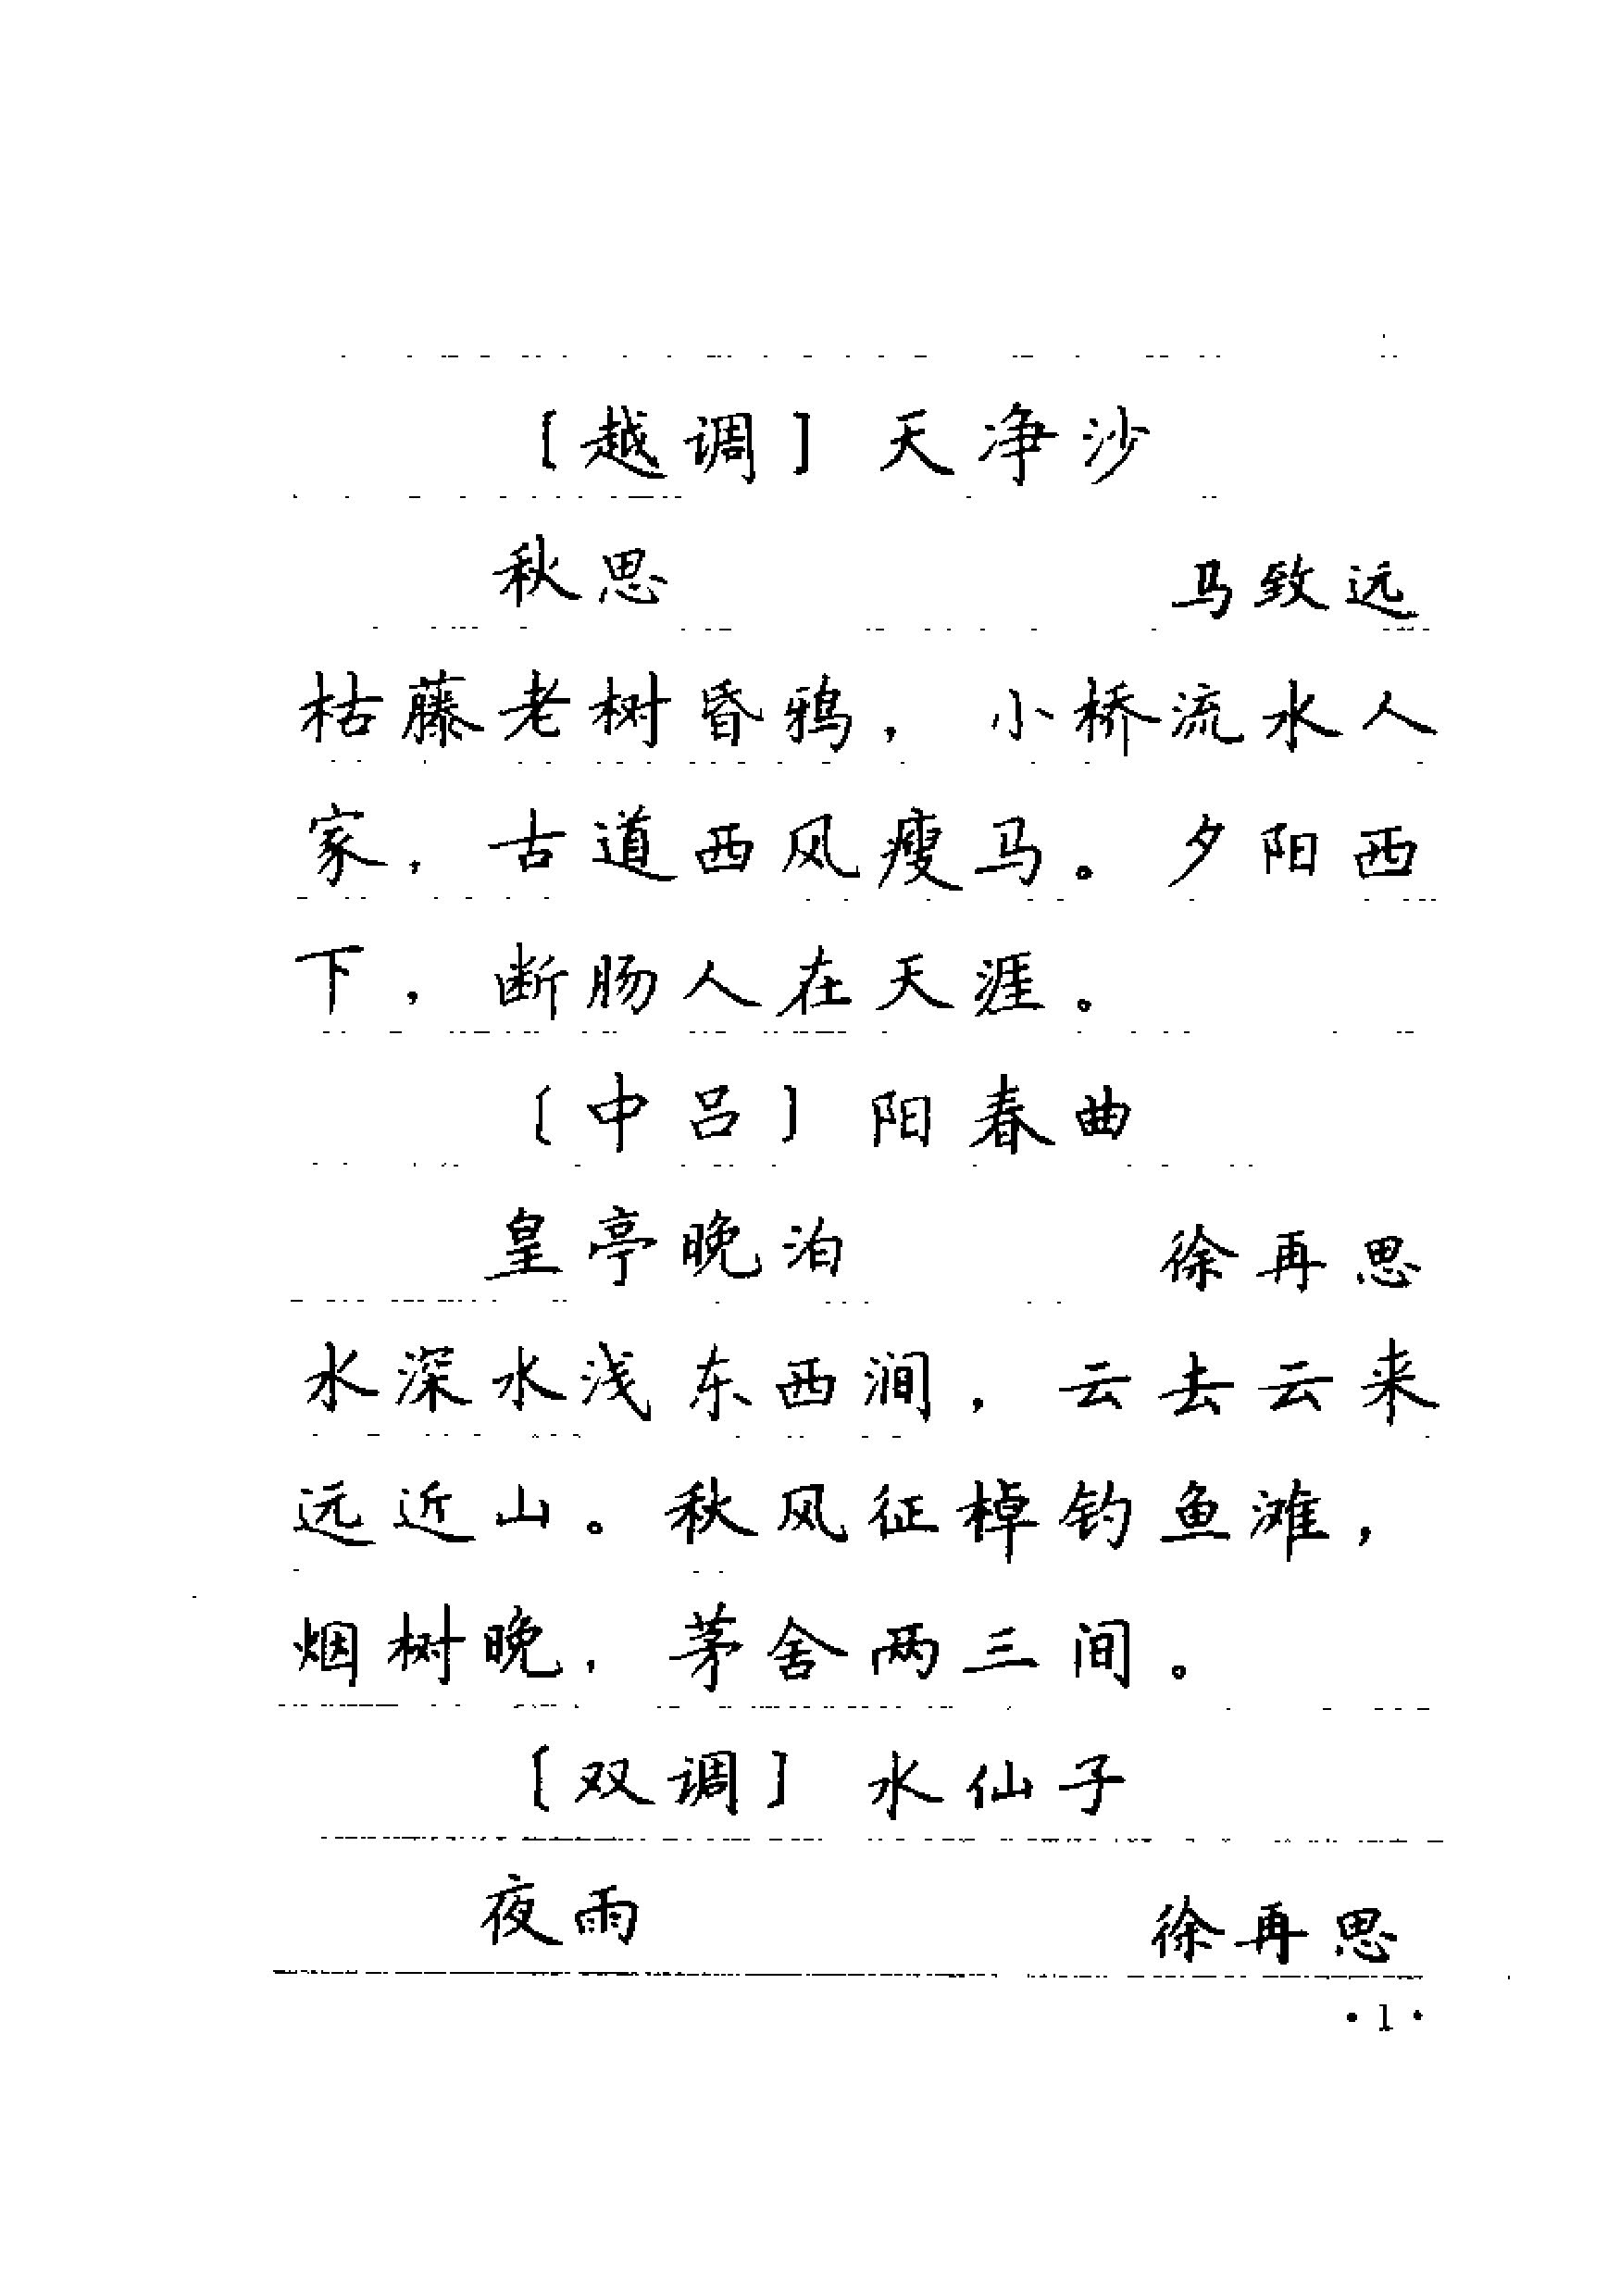 〔越调〕天净沙
秋思 马致远
枯藤老树昏鸦，小桥流水人
家，古道西风瘦马。夕阳西
下，断肠人在天涯。
〔中吕〕阳春曲
皇亭晚泊 徐再思
水深水浅东西涧，云去云来
远近山。秋风征棹钓鱼滩，
烟树晚，茅舍两三间。
〔双调〕水仙子
夜雨 徐再思
·1·